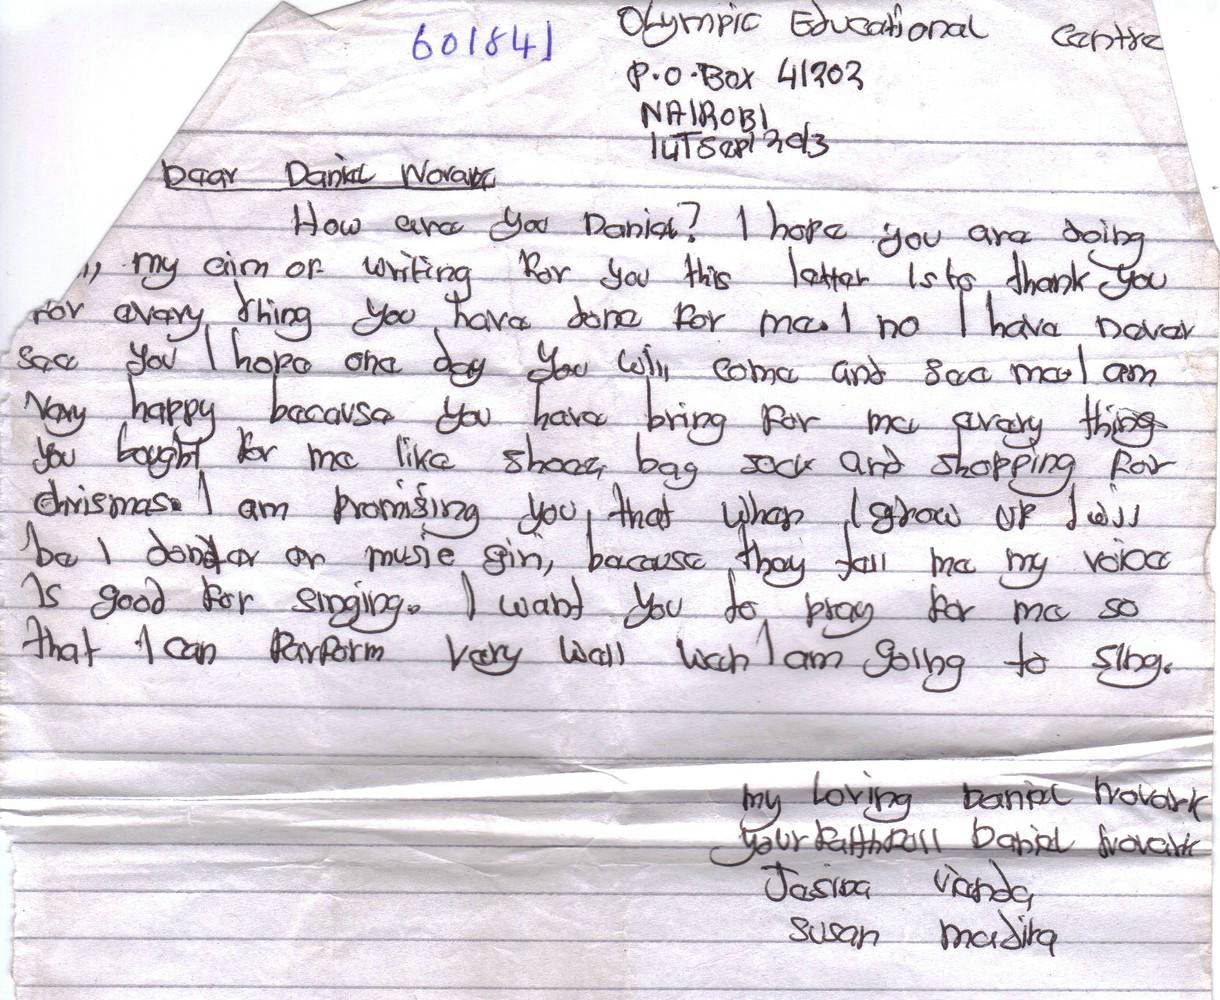 601841
Olympic Educational Centre
P.O.Box 41303
NAIROBI
14TSept 2013
Dear Daniel Novak
How are you Daniel? I hope you are doing
my aim of writing for you this letter is to thank you
for every thing you have done for me. I no I have never
see you I hope one day you will come and see me. I am
Very happy because you have bring for me every thing
you bought for me like shoes, bag sock and shopping for
chrismas. I am promising you that when I grow up I will
be I doctor or music sin, because they tell me my voice
Is good for singing. I want you to pray for me so
that I can perform very well wen I am going to sing.
my loving Daniel Novark
your faithfull Daniel Novark
Susan Madina